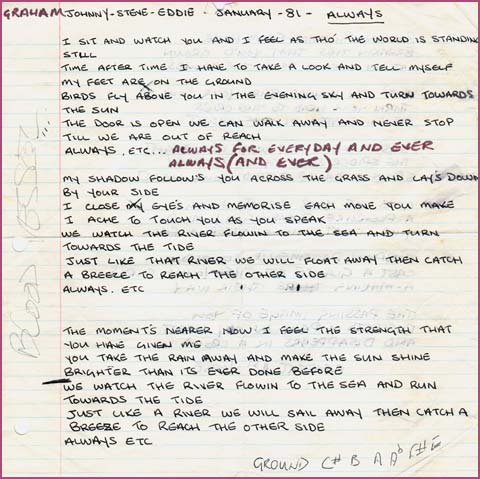 GRAHAM JOHNNY-STEVE-EDDIE - JANUARY - 81 - ALWAYS
I SIT AND WATCH YOU AND I FEEL AS THO' THE WORLD IS STANDING
STILL
TIME AFTER TIME I HAVE TO TAKE A LOOK AND TELL MYSELF
MY FEET ARE ON THE GROUND
BIRDS FLY ABOVE YOU IN THE EVENING SKY AND TURN TOWARDS
THE SUN
THE DOOR IS OPEN WE CAN WALK AWAY AND NEVER STOP
TILL WE ARE OUT OF REACH
ALWAYS, ETC... ALWAYS FOR EVERYDAY AND EVER
ALWAYS (AND EVER)
MY SHADOW FOLLOW'S YOU ACROSS THE GRASS AND LAY'S DOWN
BY YOUR SIDE
I CLOSE MY EYE'S AND MEMORISE EACH MOVE YOU MAKE
I ACHE TO TOUCH YOU AS YOU SPEAK
WE WATCH THE RIVER FLOWIN TO THE SEA AND TURN
TOWARDS THE TIDE
JUST LIKE THAT RIVER WE WILL FLOAT AWAY THEN CATCH
A BREEZE TO REACH THE OTHER SIDE
ALWAYS. ETC
THE MOMENT'S NEARER NOW I FEEL THE STRENGTH THAT
YOU HAVE GIVEN ME
YOU TAKE THE RAIN AWAY AND MAKE THE SUN SHINE
BRIGHTER THAN ITS EVER DONE BEFORE
WE WATCH THE RIVER FLOWIN TO THE SEA AND RUN
TOWARDS THE TIDE
JUST LIKE A RIVER WE WILL SAIL AWAY THEN CATCH A
BREEZE TO REACH THE OTHER SIDE
ALWAYS ETC
GROUND C# B A Ab F#E
BLOOD